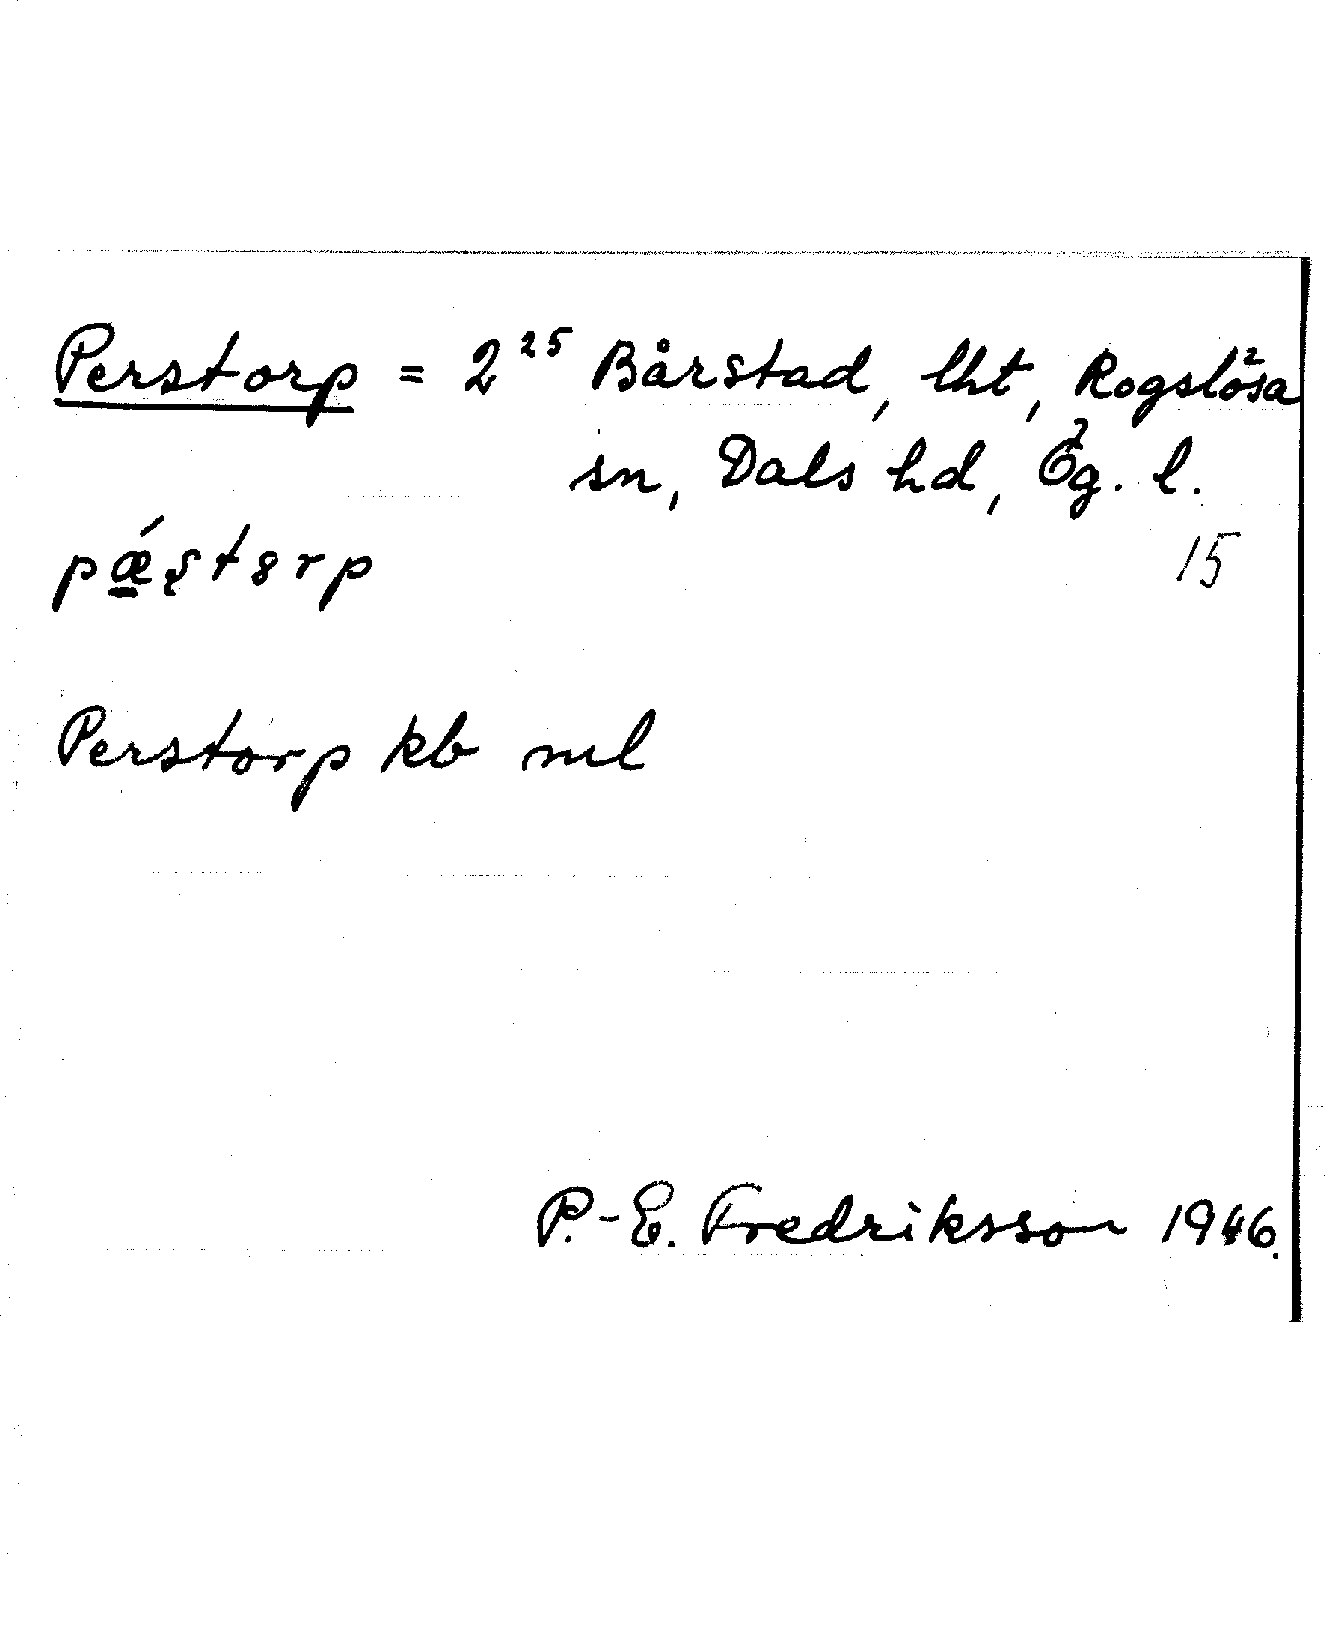 Perstorp = 2²⁵ Bårstad, lht, Rogslösa
sn, Dals hd, Ög. l.
pǽʂtȣrp
15
Perstorp kb ml
P.-E. Fredriksson 1946.